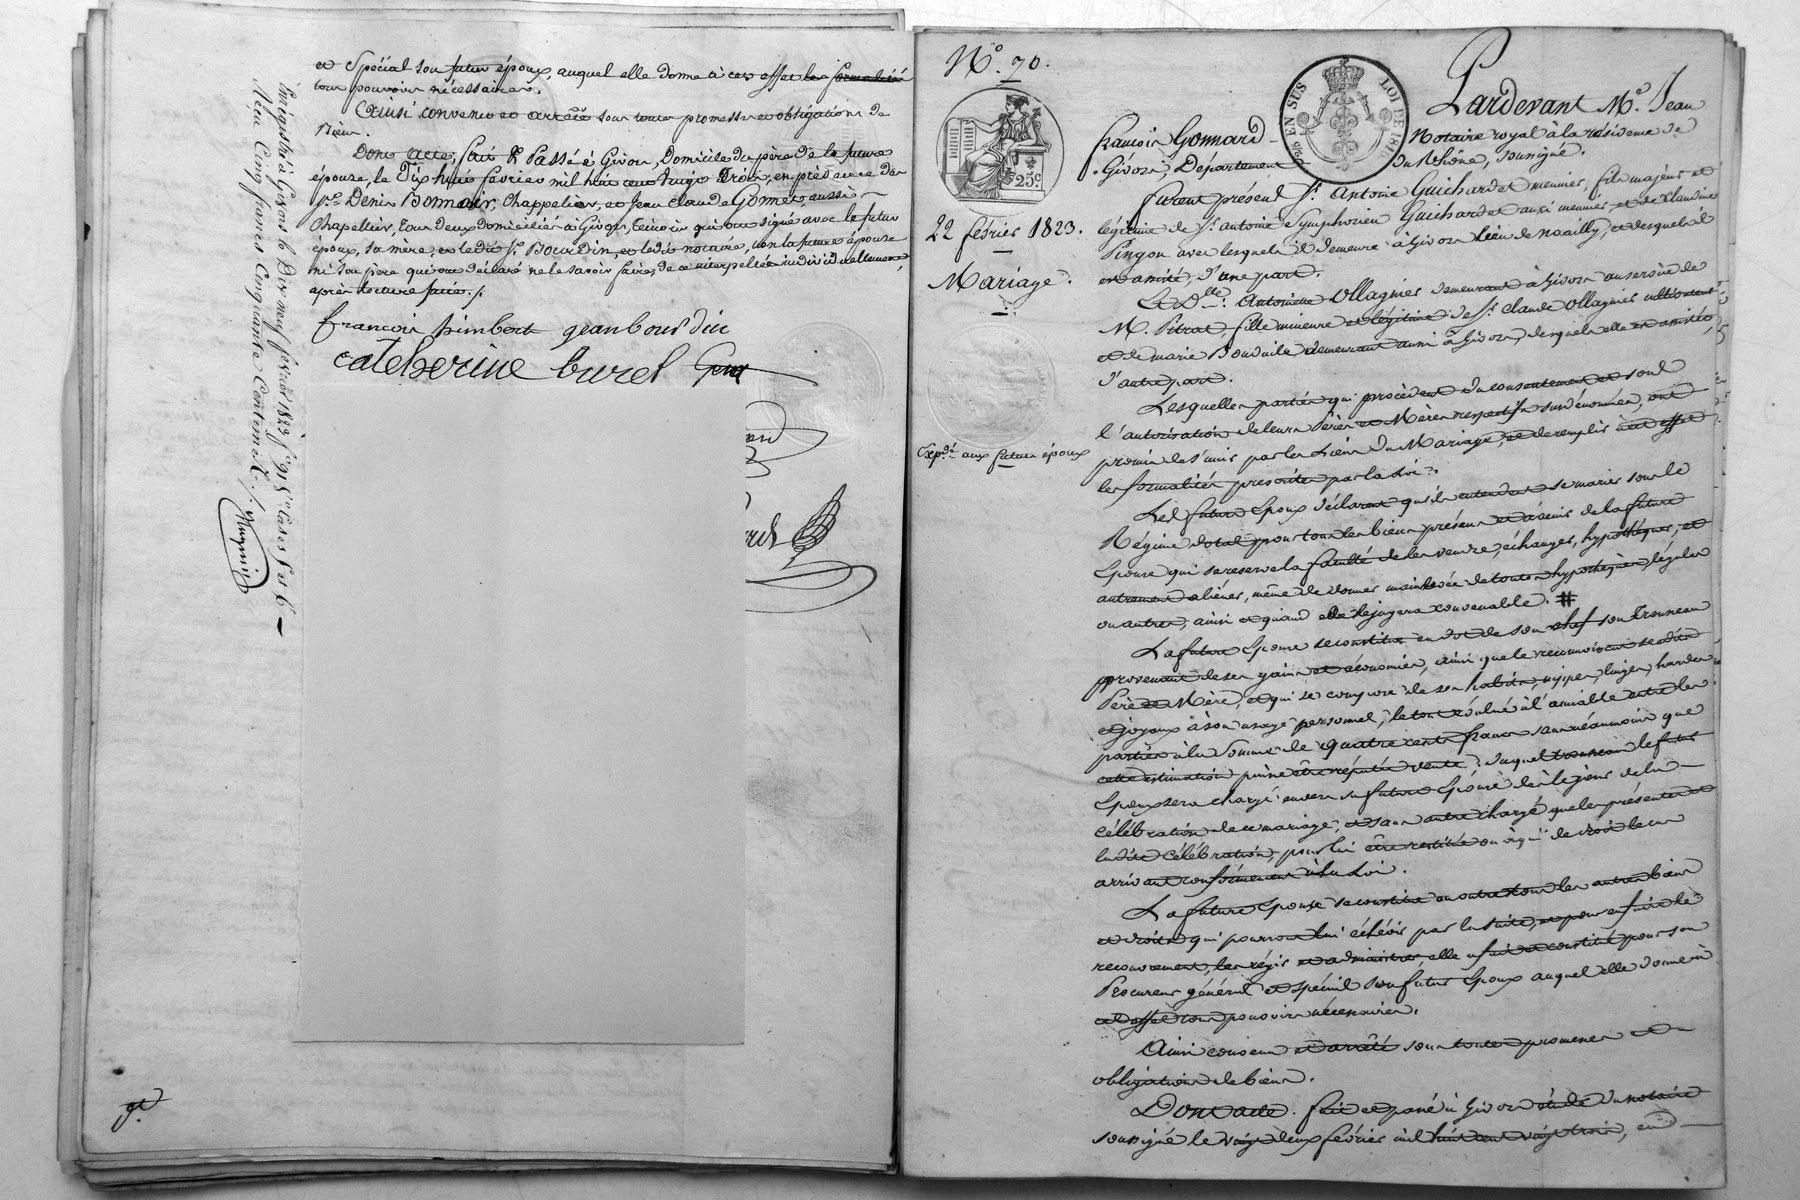 et Spécial son futur époux, auquel elle donne à cet effet les formalité
tous pouvoirs nécessaires.
Ainsi convenu et arrêté sous toutes promesses et obligations de
Biens.
Dont Acte, fait & Passé à Givors, Domicile du père de la future
épouse, le Dix huit février mil huit cent vingt Trois, en présence de
Srs Denis Bonnair, Chappelier, et Jean Claude Gomet, aussi
Chapellier, tous deux domiciliés à Givors, Témoins qui ont signé avec le futur
époux, sa mère, et ledit Sr Bourdin, et ledit notaire, non la future épouse
ni son père qui ont déclaré ne le savoir faire, de ce interpellés individuellement,
après lecture faite ./.
francois himbert jean bourdin
catcherine burel
Enregistré à Givors le Dix neuf février 1823 fo 91 Vo Cases 5 et 6
Reçu Cinq francs Cinquante Centimes /.
No. 70.
25c
22 février 1823.
Mariage.
Expdé aux futurs époux
EN SUS
LOI DE 1816
Pardevant Me. Jean
francois Gonnard Notaire royal à la résidence de
Givors, Département du Rhône, soussigné.
furent présent Sr. Antoine Guichardet meunier, fils majeur et
légitime de Sr. antoine Symphorien Guichardet aussi meunier, et de Claudine
Pingon avec lesquels il demeure à Givors lieu de noailly, et desquels il
est assisté, d'une part.
Et Dlle. Antoinette Ollagnier demeurant à Givors au service de
M. Pitrat fille mineure et légitime de Sr. Claude Ollagnier cultivateur
et de marie demeurant aussi à Givors, desquels elle est assistée,
d'autre part.
Lesquelles parties qui procèdent du consentement et sous
l'autorisation de leurs Pères et Mères respectifs susdénommés, ont
promis de s'unir par les Liens du Mariage, et de remplir à cet effet
les formalités prescrites par la Loi.
Les futurs Epoux déclarent qu'ils entendent se marier sous le
Régime dotal pour tous les biens présens et à venir de la future
Epouse qui se reserve la faculté de les vendre, échanger, hypothéquer, et
autrement aliéner, même de donner mainlevée de toutes hypothèques, légales
ou autres, ainsi et quand elle le jugera convenable. #
La future Epouse se constitue en dot de son chef son Trousseau
provenant de ses gains et économies, ainsi que le reconnoissent sesdits
Père et Mère, et qui se compose de ses habits, nippes, linges, hardes
et joyaux à son usage personnel, le tout évalué à l'amiable entre les
parties à la Somme de quatre cents francs sans néanmoins que
cette estimation puisse être réputée vente. Duquel trousseau le futur
Epoux sera chargé envers sa future Epouse dès le jour de la
célébration de ce mariage, et sans autre charge que les présentes et
ladite célébration, pour lui être restitué ou à qui de droit le cas
arrivant conformément à la Loi.
La future Epouse se constitue en outre tous les autres biens
et droits qui pourront lui échéoir par la suite, et pour en faire le
recouvrement, les régir et administrer, elle a fait et constitué pour son
Procureur général et spécial son futur Epoux auquel elle donne à
cet effet tous pouvoirs nécessaires.
Ainsi convenu et arrêté sous toutes promesses et
obligations de biens.
Dont acte. fait et passé à Givors étude du notaire
soussigné le vingt deux février mil huit cent vingt trois, en